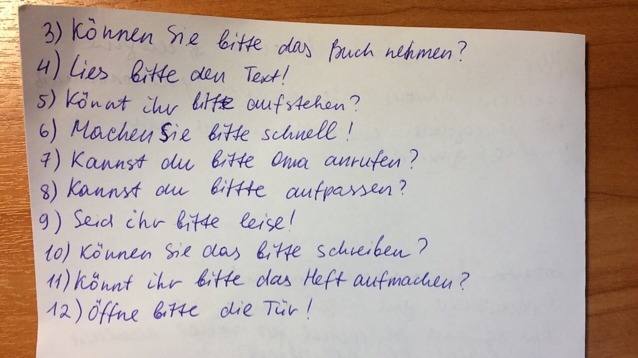 3) Können Sie bitte das Buch nehmen?
4) Lies bitte den Text!
5) Könnt ihr bitte aufstehen?
6) Machen Sie bitte schnell!
7) Kannst du bitte Oma anrufen?
8) Kannst du bittte aufpassen?
9) Seid ihr bitte leise!
10) Können Sie das bitte schreiben?
11) Könnt ihr bitte das Heft aufmachen?
12) Öffne bitte die Tür!